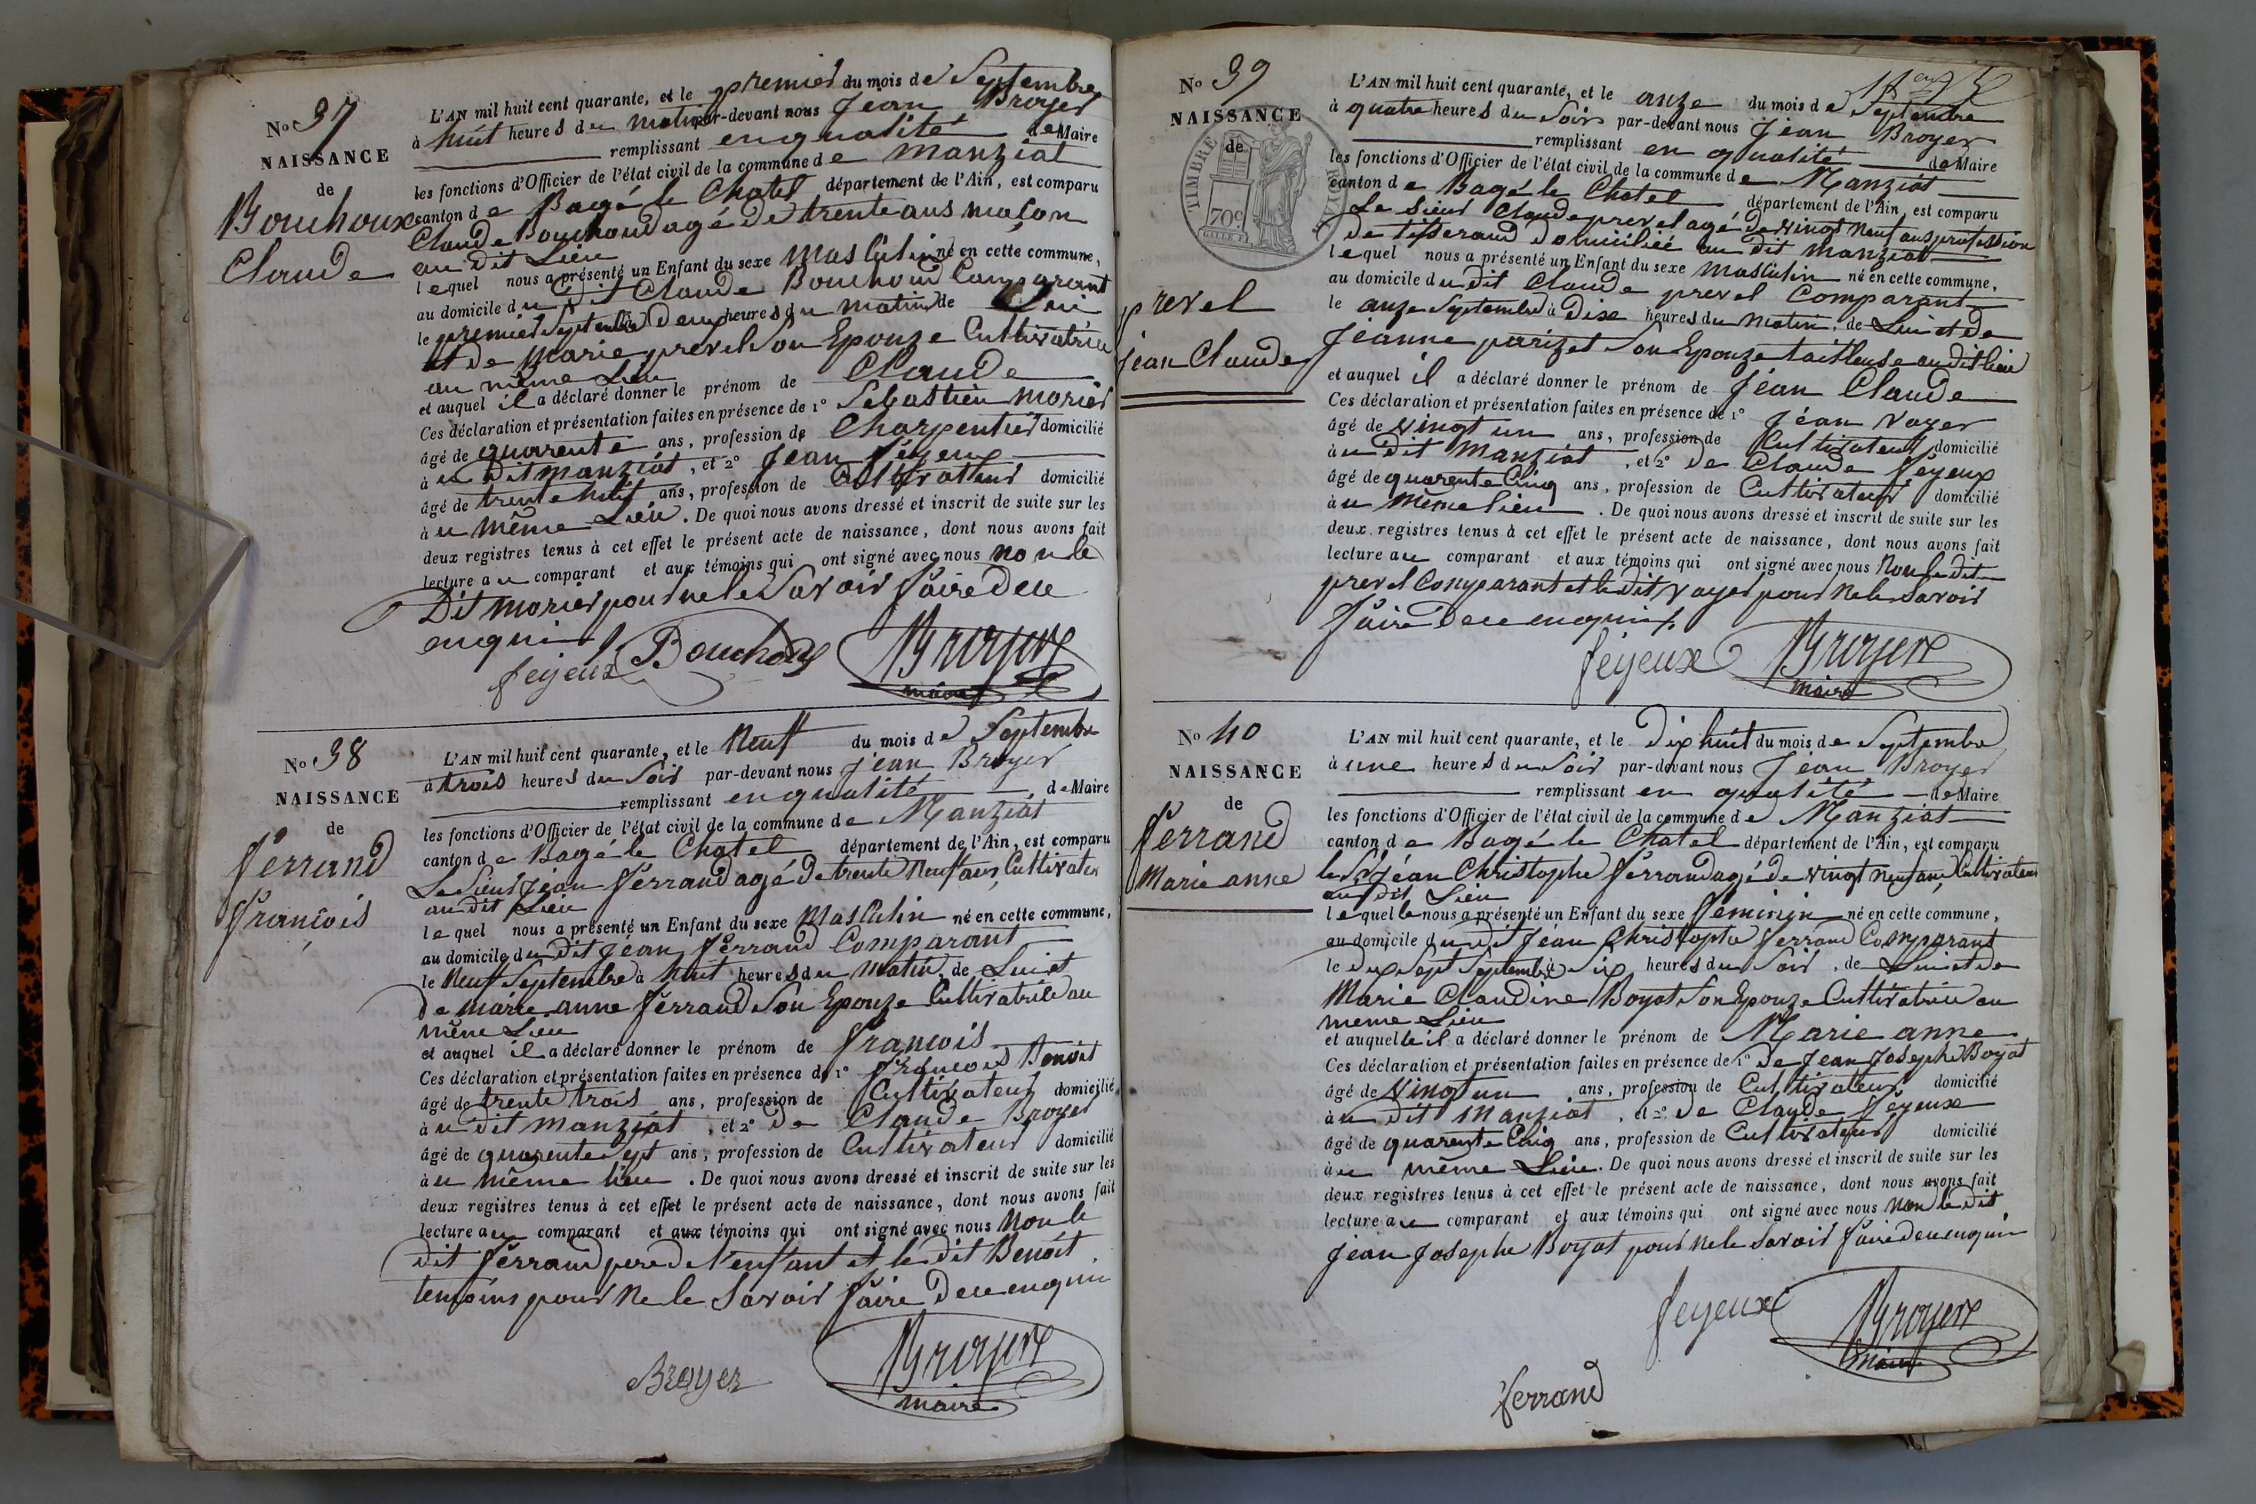 No 37
NAISSANCE
de
Bouchoux
Claude
L'AN mil huit cent quarante, et le premier du mois de Septembre
à huit heures du matin par-devant nous Jean Broyer
remplissant en qualité de Maire
les fonctions d'Officier de l'état civil de la commune de manziat
canton de Bagé le Chatel département de l'Ain, est comparu
Claude Bouchoud agé de trente ans maçon
au dit Lieu
lequel nous a présenté un Enfant du sexe masculin né en cette commune,
au domicile du dit Claude Bouchoud Comparant
le premier Septembre à Deux heures du matin de Lui
et de marie prevel Son Epouze Cultivatrice
au même Lieu
et auquel il a déclaré donner le prénom de Claude
Ces déclaration et présentation faites en présence de 1° Sebastien morier
âgé de quarente ans, profession de Charpentier domicilié
à u Dit manziat, et 2° Jean feyeux
âgé de trente huit ans, profession de Cultivateur domicilié
à u même Lieu. De quoi nous avons dressé et inscrit de suite sur les
deux registres tenus à cet effet le présent acte de naissance, dont nous avons fait
lecture au comparant et aux témoins qui ont signé avec nous non le
Dit morier pour ne le Savoir faire De ce
enquis
feyeux Bouchoux Broyer
maire
No 38
NAISSANCE
de
ferrand
françois
L'AN mil huit cent quarante, et le Neuf du mois de Septembre
à trois heures du Soir par-devant nous Jean Broyer
remplissant en qualité de Maire
les fonctions d'Officier de l'état civil de la commune de Manziat
canton de Bagé le Chatel département de l'Ain, est comparu
Le Sieur Jean ferrand agé de trente Neuf ans, Cultivateur
au dit Lieu
lequel nous a présenté un Enfant du sexe Masculin né en cette commune,
au domicile du Dit Jean ferrand Comparant
le Neuf Septembre à huit heures du matin, de Lui et
De marie anne ferrand Son Epouze Cultivatrice au
même Lieu
et auquel il a déclaré donner le prénom de françois
Ces déclaration et présentation faites en présence de 1° françois Benoit
âgé de trente trois ans, profession de Cultivateur domicilié
à u dit manziat, et 2° De Claude Broyer
âgé de quarente Sept ans, profession de Cultivateur domicilié
à u même lieu. De quoi nous avons dressé et inscrit de suite sur les
deux registres tenus à cet effet le présent acte de naissance, dont nous avons fait
lecture au comparant et aux témoins qui ont signé avec nous Non le
dit ferrand pere de l'enfant et le dit Benoit
temoins pour ne le Savoir faire De ce enquis
Broyer Broyer
maire
No 39
NAISSANCE
de
TIMBRE ROYAL
70c
prevel
jean Claude
L'AN mil huit cent quarante, et le onze du mois de Septembre
à quatre heures du Soir par-devant nous Jean Broyer
remplissant en qualité de Maire
les fonctions d'Officier de l'état civil de la commune de Manziat
canton de Bagé le Chatel département de l'Ain, est comparu
Le Sieur Claude prevel agé de vingt Neuf ans profession
De tisserand domicilié au dit manziat
lequel nous a présenté un Enfant du sexe masculin né en cette commune,
au domicile du dit Claude prevel Comparant
le onze Septembre à Dix heures du matin, de Lui et de
Jeanne parizet Son Epouze tailleuse au dit lieu
et auquel il a déclaré donner le prénom de Jéan Claude
Ces déclaration et présentation faites en présence de 1° Jéan Voyer
âgé de vingt un ans, profession de Cultivateur domicilié
à u dit Manziat, et 2° de Claude feyeux
âgé de quarente Cinq ans, profession de Cultivateur domicilié
à u même lieu. De quoi nous avons dressé et inscrit de suite sur les
deux registres tenus à cet effet le présent acte de naissance, dont nous avons fait
lecture au comparant et aux témoins qui ont signé avec nous Non le dit
prevel Comparant et le dit Voyer pour ne le savoir
faire De ce enquis
feyeux Broyer
maire
No 40
NAISSANCE
de
ferrand
Marie anne
L'AN mil huit cent quarante, et le Dix huit du mois de Septembre
à une heures du Soir par-devant nous Jean Broyer
remplissant en qualité de Maire
les fonctions d'Officier de l'état civil de la commune de Manziat
canton de Bagé le Chatel département de l'Ain, est comparu
le Sr Jéan Christophe ferrand agé de vingt neuf ans, Cultivateur
au dit Lieu
lequelle nous a présenté un Enfant du sexe feminin né en cette commune,
au domicile du dit Jéan Christophe ferrand Comparant
le dix Sept Septembre à Six heures du Soir, de Lui et de
Marie Claudine Boyat Son Epouze Cultivatrice au
meme Lieu
et auquelle il a déclaré donner le prénom de Marie anne
Ces déclaration et présentation faites en présence de 1° De Jean Josephe Boyat
âgé de vingt un ans, profession de Cultivateur domicilié
à u dit Manziat, et 2° de Claude feyeux
âgé de quarente Cinq ans, profession de Cultivateur domicilié
à u même Lieu. De quoi nous avons dressé et inscrit de suite sur les
deux registres tenus à cet effet le présent acte de naissance, dont nous avons fait
lecture au comparant et aux témoins qui ont signé avec nous Non le dit
Jean Josephe Boyat pour ne le savoir faire de ce enquis
feyeux Broyer
maire
ferrand